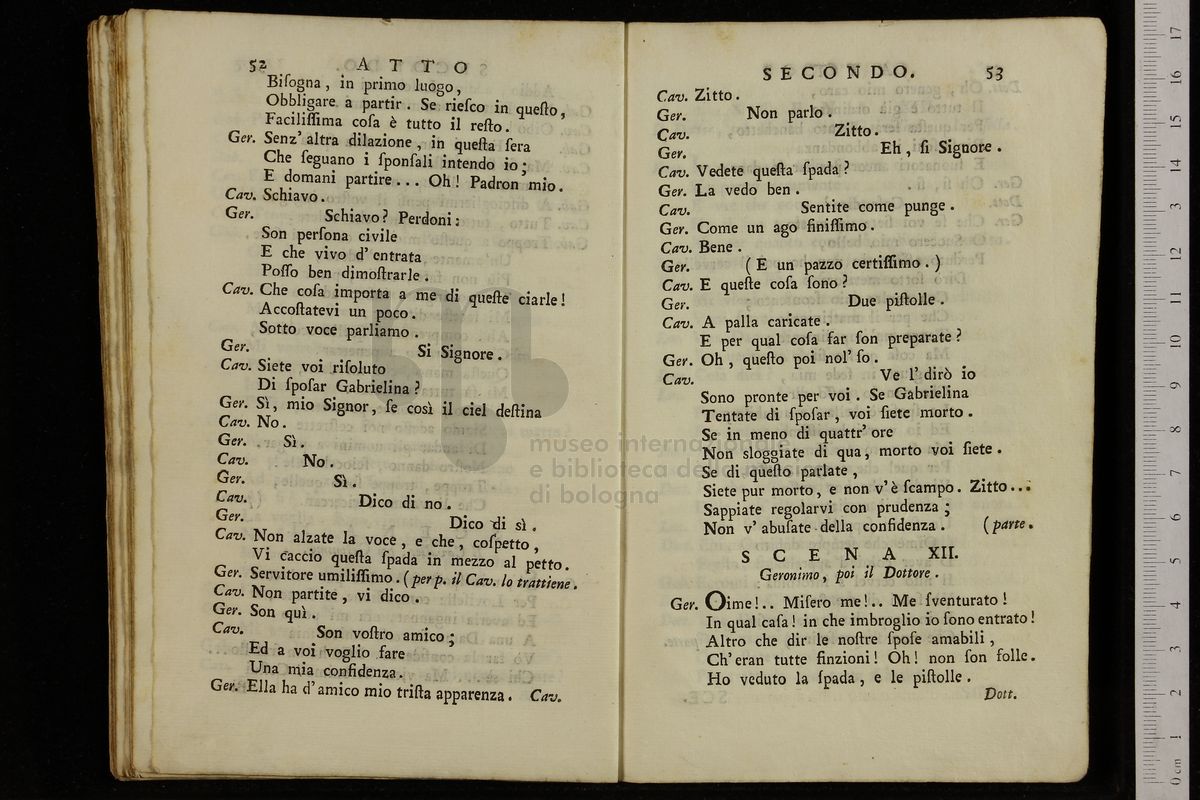 52 A T T O
Biſogna, in primo luogo,
Obbligare a partir. Se rieſco in queſto,
Faciliſſima coſa è tutto il reſto.
Ger. Senz'altra dilazione, in queſta ſera
Che ſeguano i ſponſali intendo io;
E domani partire... Oh! Padron mio.
Cav. Schiavo.
Ger. Schiavo? Perdoni:
Son perſona civile
E che vivo d'entrata
Poſſo ben dimoſtrarle.
Cav. Che coſa importa a me di queſte ciarle!
Accoſtatevi un poco.
Sotto voce parliamo.
Ger. Si Signore.
Cav. Siete voi riſoluto
Di ſpoſar Gabrielina?
Ger. Sì, mio Signor, ſe così il ciel deſtina
Cav. No.
Ger. Sì.
Cav. No.
Ger. Sì.
Cav. Dico di no.
Ger. Dico di sì.
Cav. Non alzate la voce, e che, coſpetto,
Vi caccio queſta ſpada in mezzo al petto.
Ger. Servitore umiliſſimo. (per p. il Cav. lo trattiene.
Cav. Non partite, vi dico.
Ger. Son quì.
Cav. Son voſtro amico;
Ed a voi voglio fare
Una mia confidenza.
Ger. Ella ha d'amico mio triſta apparenza. Cav.
SECONDO. 53
Cav. Zitto.
Ger. Non parlo.
Cav. Zitto.
Ger. Eh, ſi Signore.
Cav. Vedete queſta ſpada?
Ger. La vedo ben.
Cav. Sentite come punge.
Ger. Come un ago finiſſimo.
Cav. Bene.
Ger. (È un pazzo certiſſimo.)
Cav. E queſte coſa ſono?
Ger. Due piſtolle.
Cav. A palla caricate.
E per qual coſa far ſon preparate?
Ger. Oh, queſto poi nol' ſo.
Cav. Ve l'dirò io
Sono pronte per voi. Se Gabrielina
Tentate di ſpoſar, voi ſiete morto.
Se in meno di quattr'ore
Non sloggiate di qua, morto voi ſiete.
Se di queſto parlate,
Siete pur morto, e non v'è ſcampo. Zitto...
Sappiate regolarvi con prudenza;
Non v'abuſate della confidenza. (parte.
S C E N A XII.
Geronimo, poi il Dottore.
Ger. Oime!.. Miſero me!.. Me ſventurato!
In qual caſa! in che imbroglio io ſono entrato!
Altro che dir le noſtre ſpoſe amabili,
Ch'eran tutte finzioni! Oh! non ſon folle.
Ho veduto la ſpada, e le piſtolle.
Dott.
museo internazionale
e biblioteca della musica
di bologna
0 cm 1 2 3 4 5 6 7 8 9 10 11 12 13 14 15 16 17